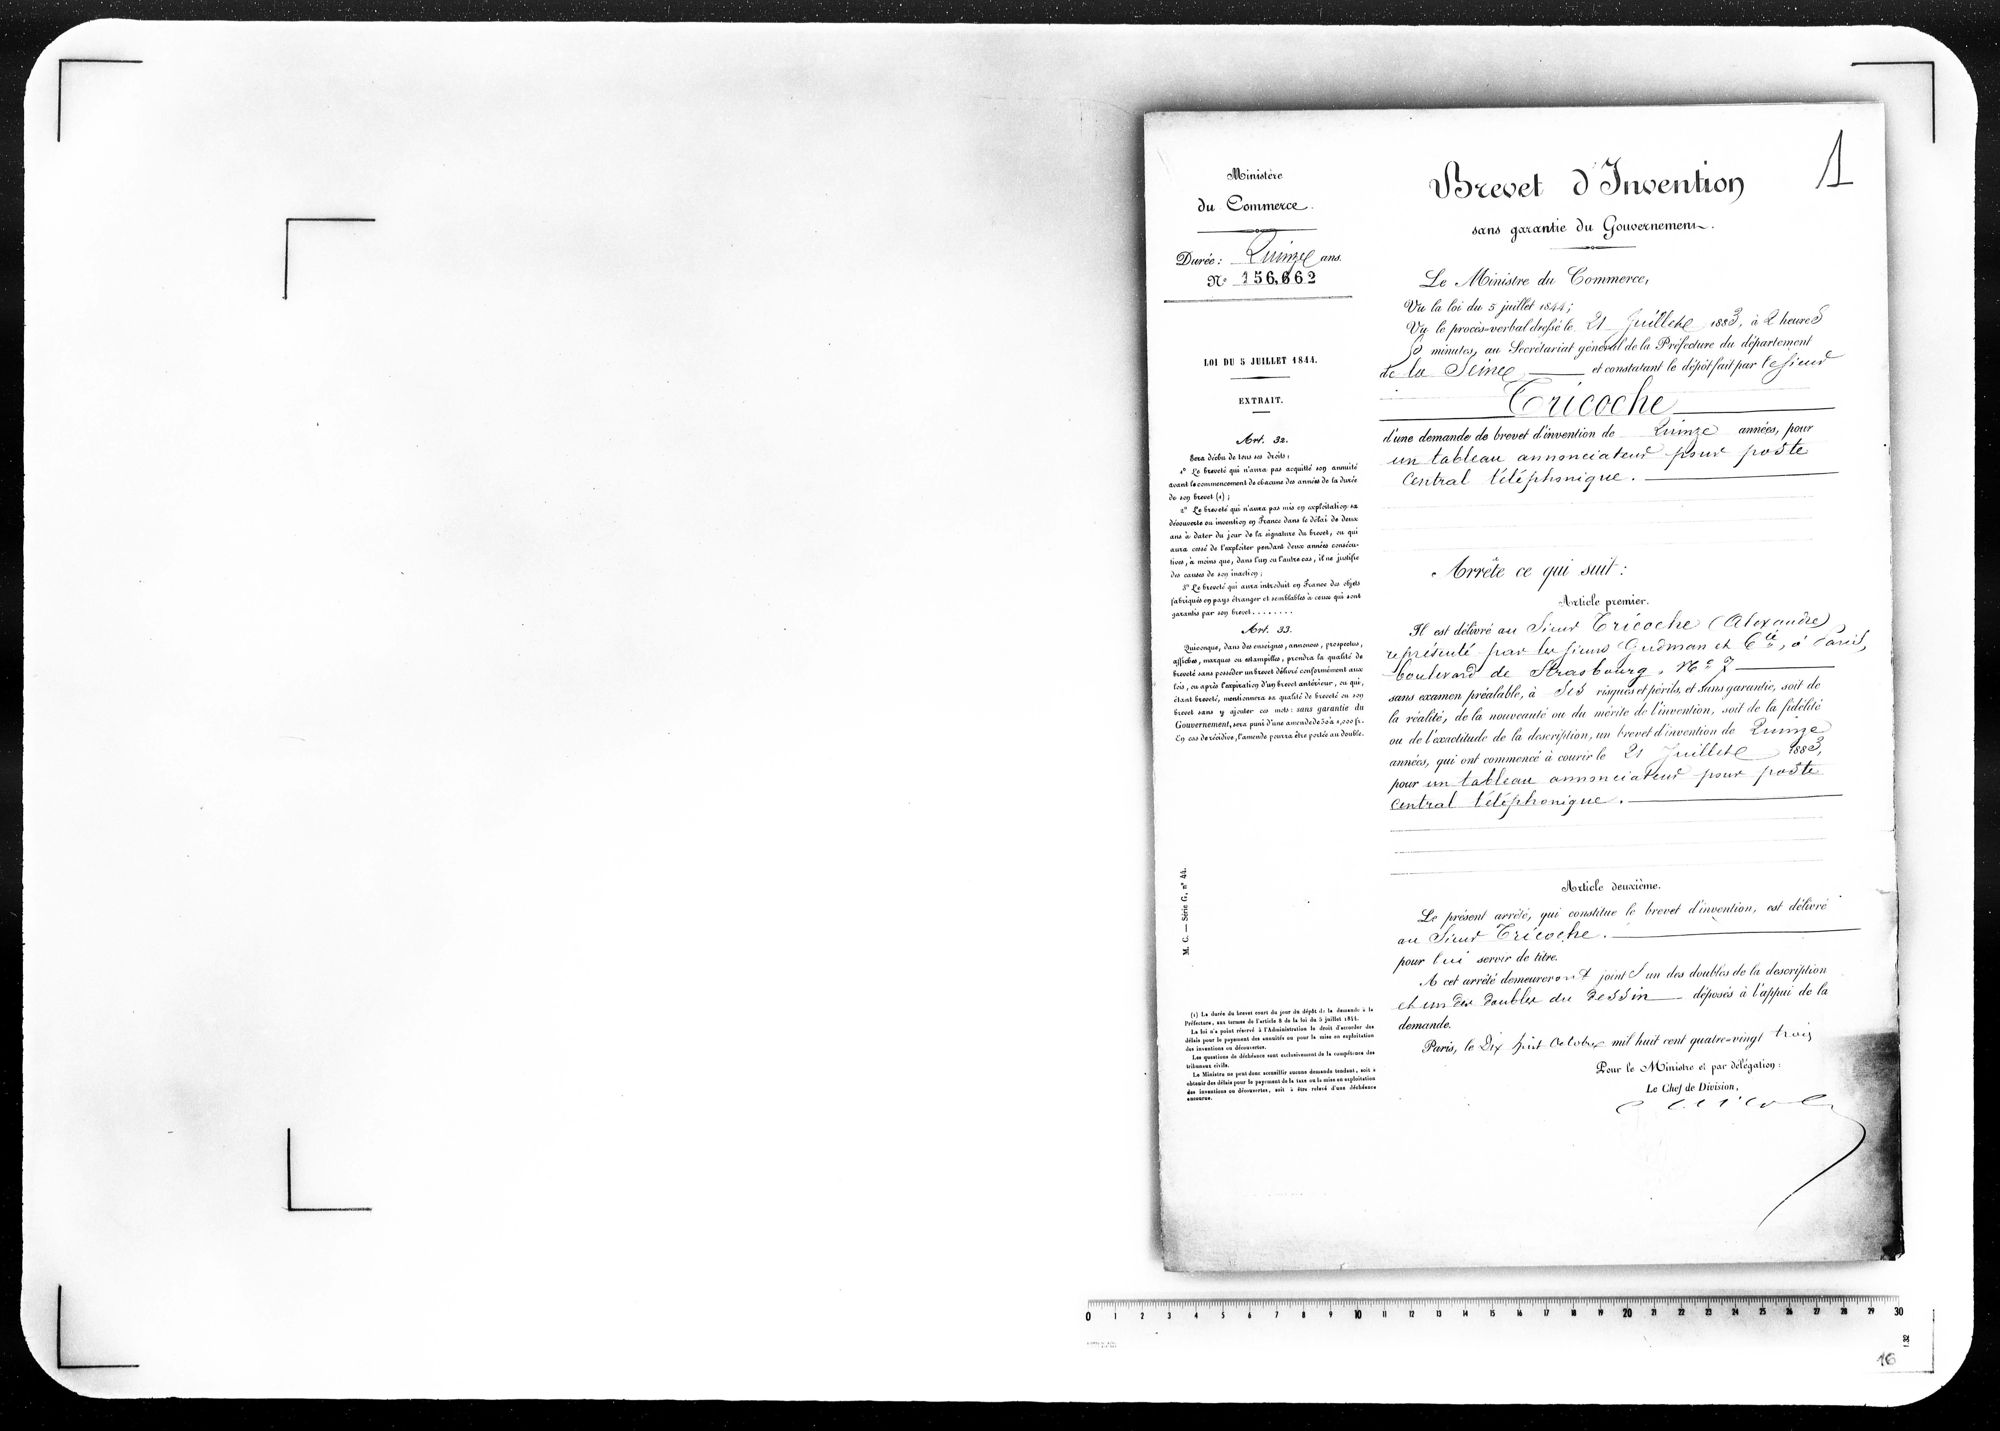 1
Ministère
du Commerce.
Durée: Quinze ans.
N° 156,662
LOI DU 5 JUILLET 1844.
EXTRAIT.
Art. 32.
Sera déchu de tous ses droits:
1° Le breveté qui n'aura pas acquitté son annuité
avant le commencement de chacune des années de la durée
de son brevet (1);
2° Le breveté qui n'aura pas mis en exploitation sa
découverte ou invention en France dans le délai de deux
ans à dater du jour de la signature du brevet, ou qui
aura cessé de l'exploiter pendant deux années consécu-
tives, à moins que, dans l'un ou l'autre cas, il ne justifie
des causes de son inaction;
3° Le breveté qui aura introduit en France des objets
fabriqués en pays étranger et semblables à ceux qui sont
garantis par son brevet........
Art. 33.
Quiconque, dans des enseignes, annonces, prospectus,
affiches, marques ou estampilles, prendra la qualité de
breveté sans posséder un brevet délivré conformément aux
lois, ou après l'expiration d'un brevet antérieur, ou qui,
étant breveté, mentionnera sa qualité de breveté ou son
brevet sans y ajouter ces mots: sans garantie du
Gouvernement, sera puni d'une amende de 50 à 1,000 fr.
En cas de récidive, l'amende pourra être portée au double.
M. C. — Série G, n° 44.
(1) La durée du brevet court du jour du dépôt de la demande à la
Préfecture, aux termes de l'article 8 de la loi du 5 juillet 1844.
La loi n'a point réservé à l'Administration le droit d'accorder des
délais pour le payement des annuités ou pour la mise en exploitation
des inventions ou découvertes.
Les questions de déchéance sont exclusivement de la compétence des
tribunaux civils.
Le Ministre ne peut donc accueillir aucune demande tendant, soit à
obtenir des délais pour le payement de la taxe ou la mise en exploitation
des inventions ou découvertes, soit à être relevé d'une déchéance
encourue.
Brevet d'Invention
sans garantie du Gouvernement.
Le Ministre du Commerce,
Vu la loi du 5 juillet 1844;
Vu le procès-verbal dressé le 21 Juillet 1883, à 2 heures
minutes, au Secrétariat général de la Préfecture du département
de la Seine et constatant le dépôt fait par le sieur
Tricoche
d'une demande de brevet d'invention de Quinze années, pour
un tableau annonciateur pour poste
central téléphonique.
Arrête ce qui suit:
Article premier.
Il est délivré au Sieur Tricoche (Alexandre),
représenté par les sieurs Gudman et Cie, à Paris,
boulevard de Strasbourg, N° 7
sans examen préalable, à ses risques et périls, et sans garantie, soit de
la réalité, de la nouveauté ou du mérite de l'invention, soit de la fidélité
ou de l'exactitude de la description, un brevet d'invention de Quinze
années, qui ont commencé à courir le 21 Juillet 1883,
pour un tableau annonciateur pour poste
central téléphonique.
Article deuxième.
Le présent arrêté, qui constitue le brevet d'invention, est délivré
au Sieur Tricoche.
pour lui servir de titre.
A cet arrêté demeureront joints un des doubles de la description
et un des doubles du dessin déposés à l'appui de la
demande.
Paris, le Dix huit Octobre mil huit cent quatre-vingt trois
Pour le Ministre et par délégation:
Le Chef de Division,
0 1 2 3 4 5 6 7 8 9 10 11 12 13 14 15 16 17 18 19 20 21 22 23 24 25 26 27 28 29 30
16